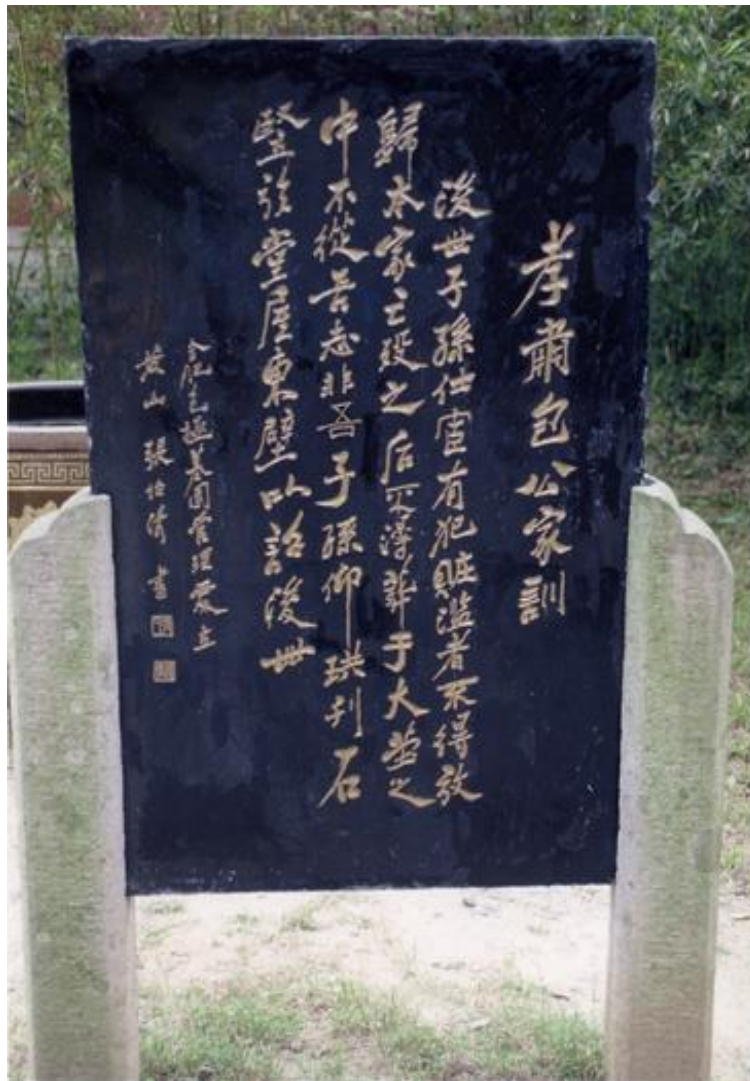 孝肅包公家訓
後世子孫仕宦有犯贓濫者不得放
歸本家亡殁之后不得葬于大塋之
中不從吾志非吾子孫仰珙刊石
竪於堂屋東壁以詔後世
合肥包拯墓園管理處立
黃山 張 書